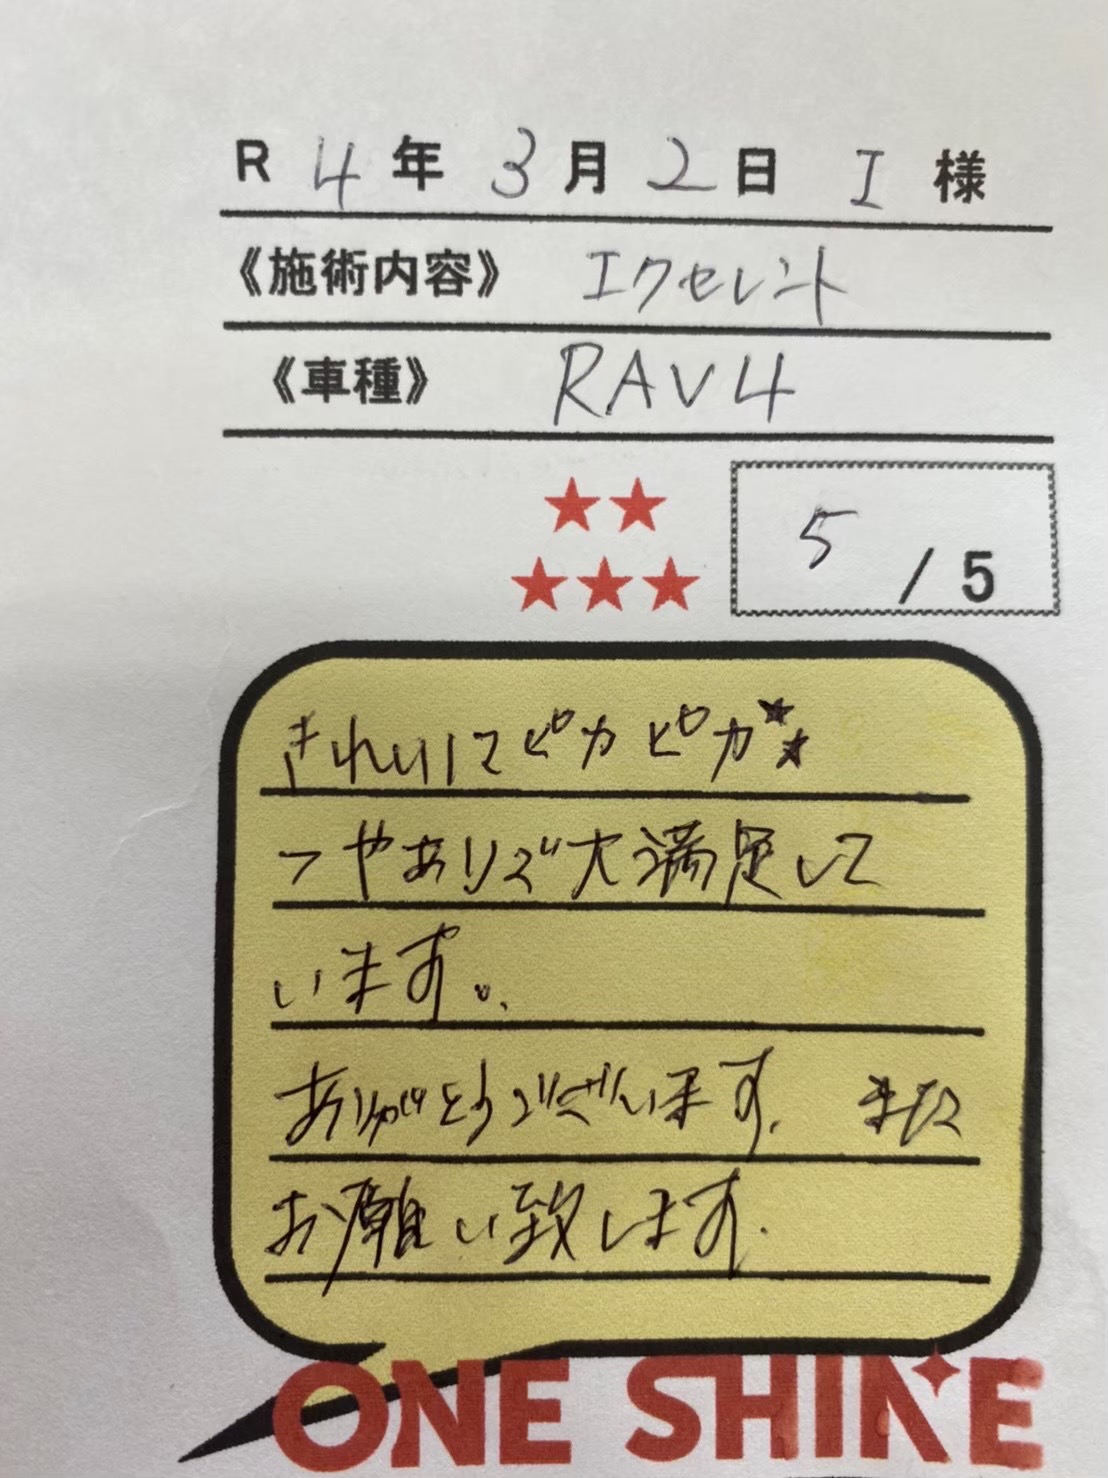 R 4年 3月 2日 I 様
《施術内容》 エクセレント
《車種》 RAV4
★★
★★★
5 / 5
きれいにてピカピカ★★
つやありで大満足して
います。
ありがとうございます。 また
お願い致します。
ONE SHINE